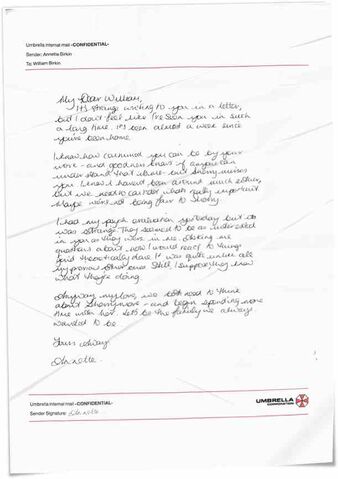 Umbrella internal mail -CONFIDENTIAL-
Sender: Annette Birkin
To: William Birkin
My Dear William,
It's strange writing to you in a letter,
but I don't feel like I've seen you in such
a long time. It's been almost a week since
you've been home.
I know how consumed you can be by your
work - and goodness knows if anyone can
understand that it's me - but Sherry misses
you. I know I haven't been around much either,
but we need to consider what's really important.
Maybe we're not being fair to Sherry.
I had my psych evaluation yesterday, but it
was strange. They seemed to be as interested
in you as they were in me. Asking me
questions about how I would react to things
you'd theoretically done. It was quite unlike all
my previous ones. Still, I suppose they know
what they're doing.
Anyway my love, we both need to think
about Sherry more - and begin spending more
time with her. Let's be the family we always
wanted to be.
Yours always
Annette.
Umbrella internal mail -CONFIDENTIAL-
Sender Signature: Annette
UMBRELLA
CORPORATION